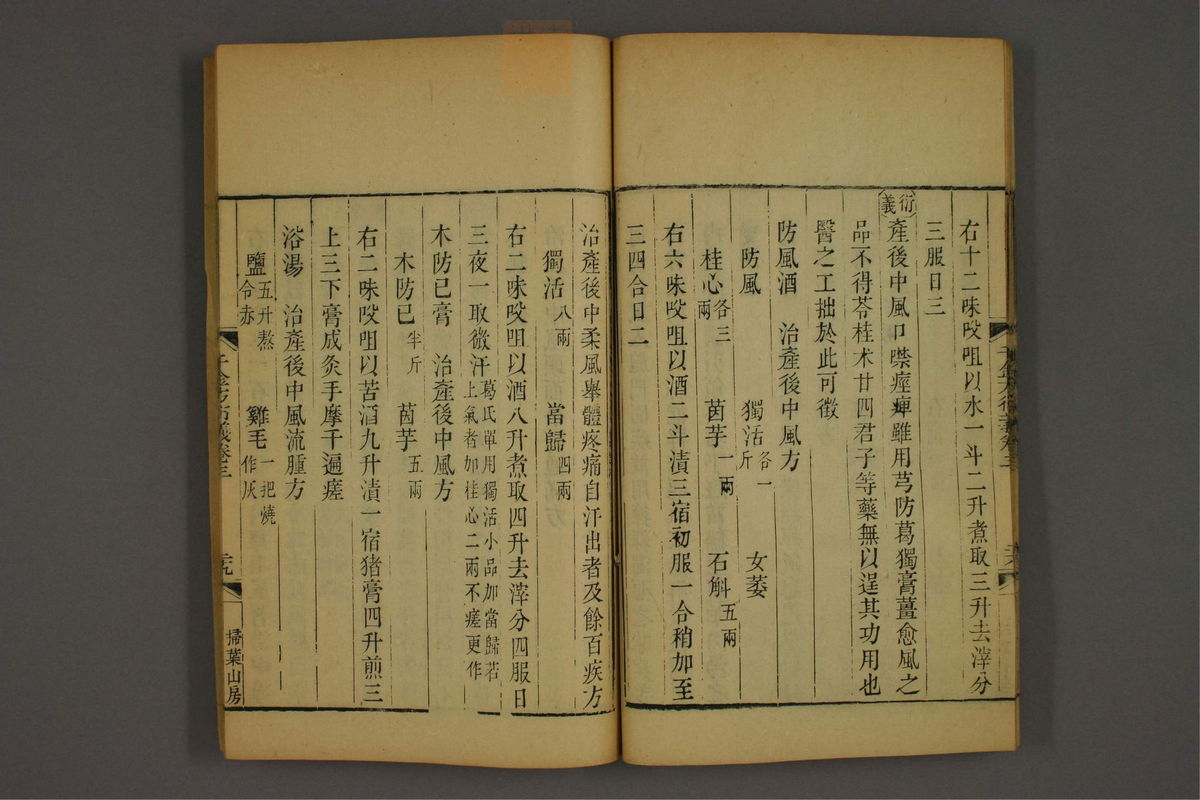 右十二味㕮咀以水一斗二升煮取三升去滓分
三服日三
衍義
產後中風口噤痙痺雖用芎防葛獨膏薑愈風之
品不得苓桂术甘四君子等藥無以逞其功用也
醫之工拙於此可徵
防風酒 治產後中風方
防風 獨活各一斤 女萎
桂心各三兩 茵芋一兩 石斛五兩
右六味㕮咀以酒二斗漬三宿初服一合稍加至
三四合日二
治產後中柔風舉體疼痛自汗出者及餘百疾方
獨活八兩 當歸四兩
右二味㕮咀以酒八升煮取四升去滓分四服日
三夜一取微汗葛氏單用獨活小品加當歸若上氣者加桂心二兩不瘥更作
木防已膏 治產後中風方
木防已半斤 茵芋五兩
右二味㕮咀以苦酒九升漬一宿猪膏四升煎三
上三下膏成炙手摩千遍瘥
浴湯 治產後中風流腫方
鹽五升熬令赤 雞毛一把燒作灰
千金方衍義卷三
二十九
掃葉山房